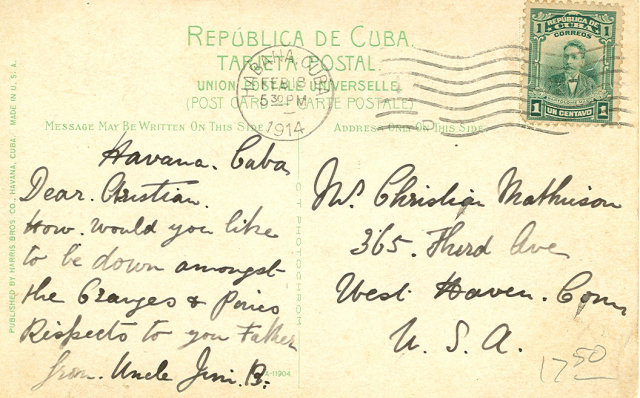 REPÚBLICA DE CUBA.
TARJETA POSTAL.
UNION POSTALE UNIVERSELLE.
(POST CARD-CARTE POSTALE)
HABANA, CUBA
FEB 18
5 30 PM
1914
REPÚBLICA DE CUBA
1 1
CORREOS
1 1
UN CENTAVO
MESSAGE MAY BE WRITTEN ON THIS SIDE
ADDRESS ONLY ON THIS SIDE
Havana. Cuba
Dear. Christian.
How. would you like
to be down amongst
the Oranges & Pines
Respects to you Father
from. Uncle Jim. B.
Mr. Christian Mathison
365. Third Ave
West. Haven. Conn
U. S. A.
17 50
PUBLISHED BY HARRIS BROS. CO., HAVANA, CUBA. MADE IN U. S. A.
C T PHOTOCHROM
A-11904